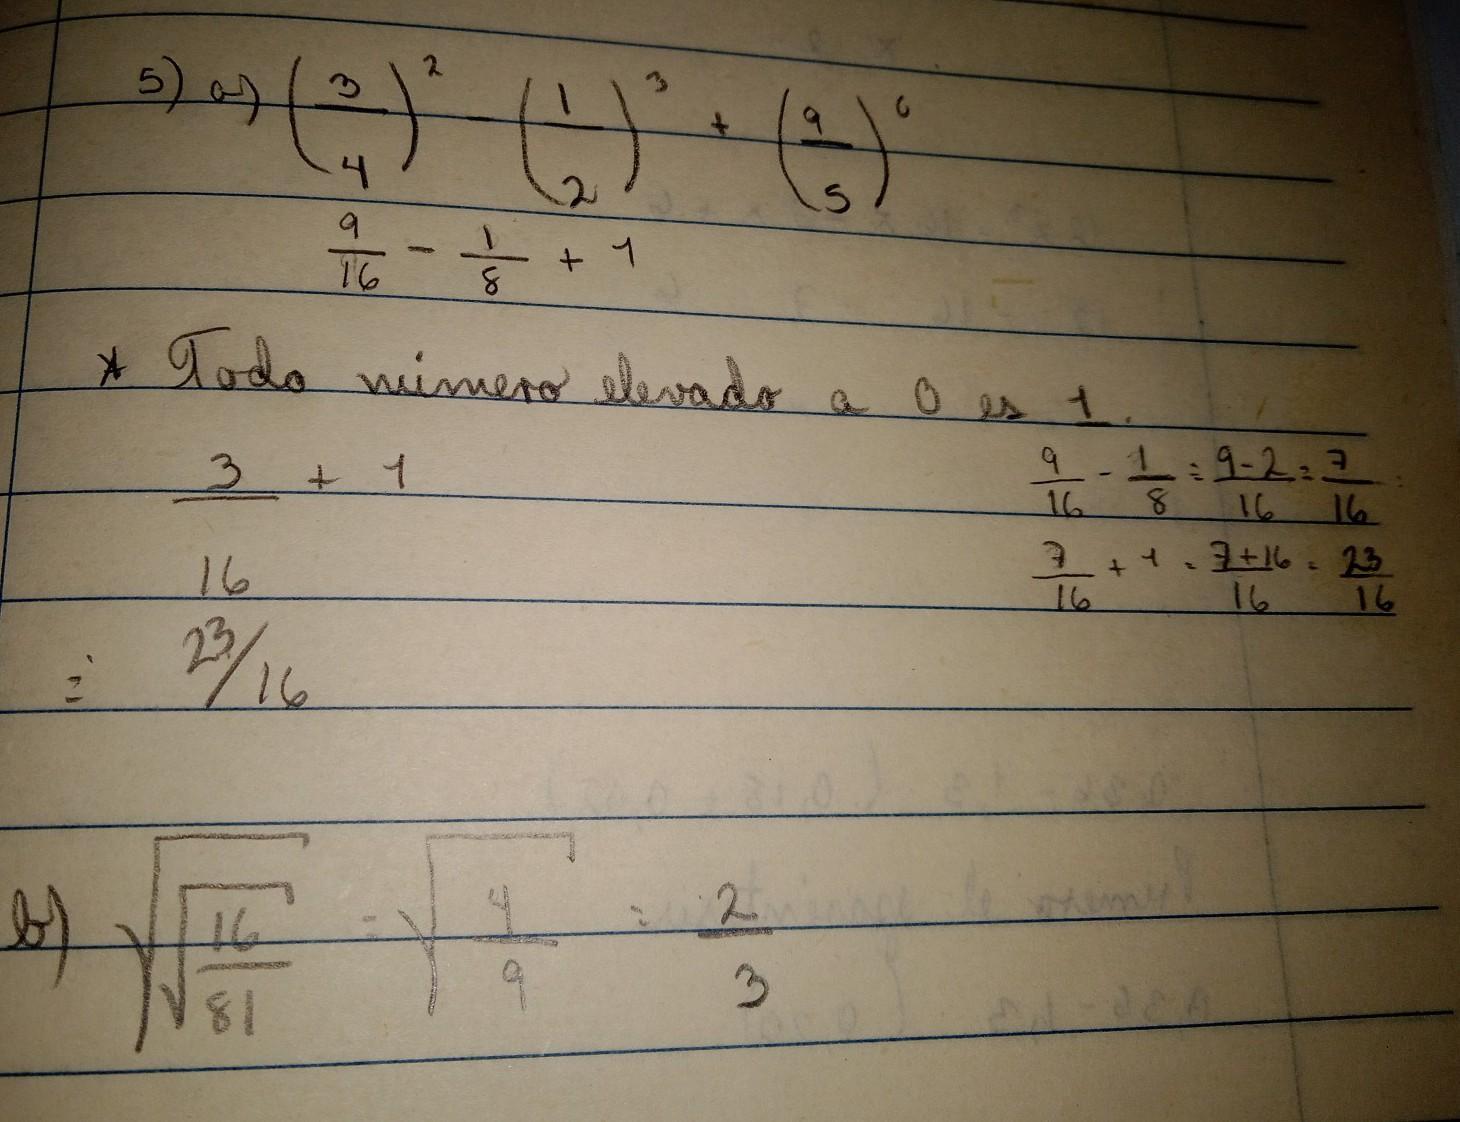 5) a) (3/4)² - (1/2)³ + (9/5)⁰
9/16 - 1/8 + 1
* Todo número elevado a 0 es 1.
3/16 + 1
9/16 - 1/8 = 9-2/16 = 7/16
7/16 + 1 = 7+16/16 = 23/16
= 23/16
b) √√16/81 = √4/9 = 2/3